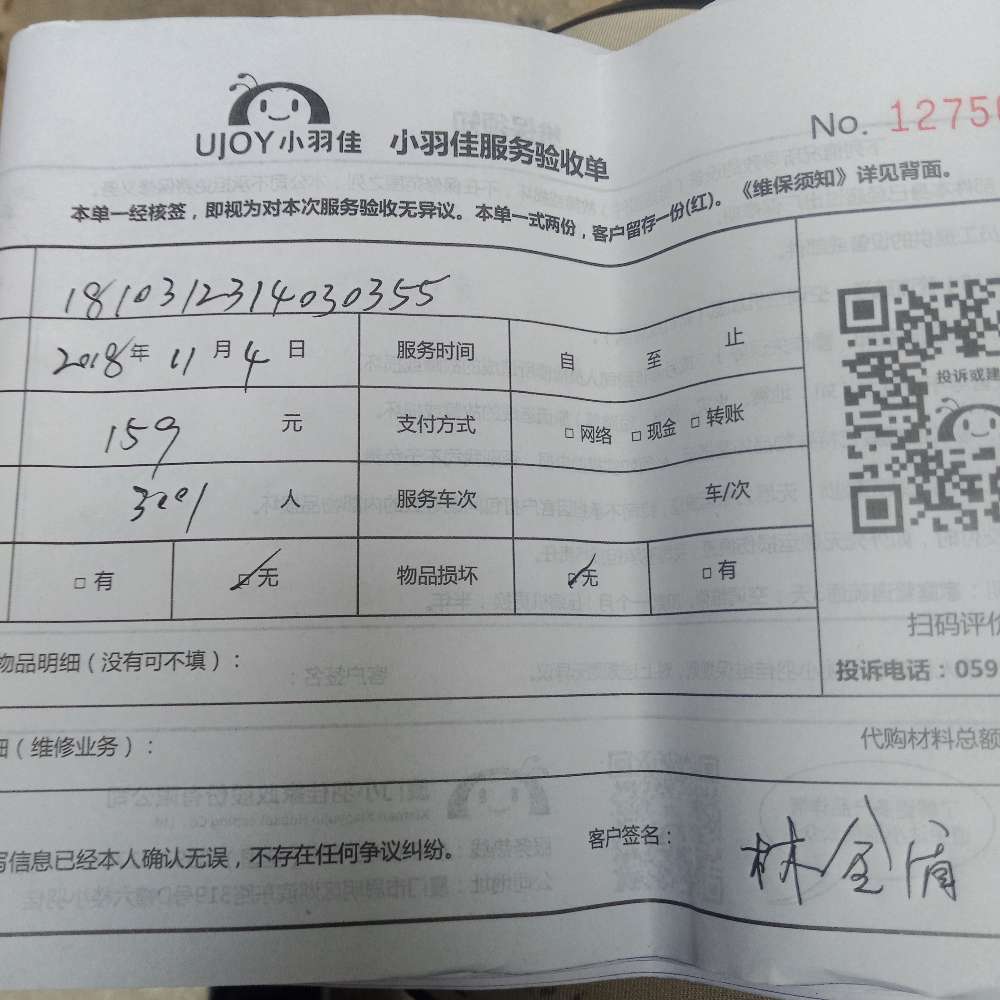 No. 1275
UJOY小羽佳 小羽佳服务验收单
本单一经核签，即视为对本次服务验收无异议。本单一式两份，客户留存一份(红)。《维保须知》详见背面。
1810312314030355
2018年 11月 4日 服务时间 自 至 止
159 元 支付方式 □网络 □现金 □转账
人 服务车次 车/次
□有 □无 物品损坏 □无 □有
投诉或建
扫码评价
物品明细（没有可不填）：
投诉电话：059
细（维修业务）：
代购材料总额
写信息已经本人确认无误，不存在任何争议纠纷。
客户签名： 林金